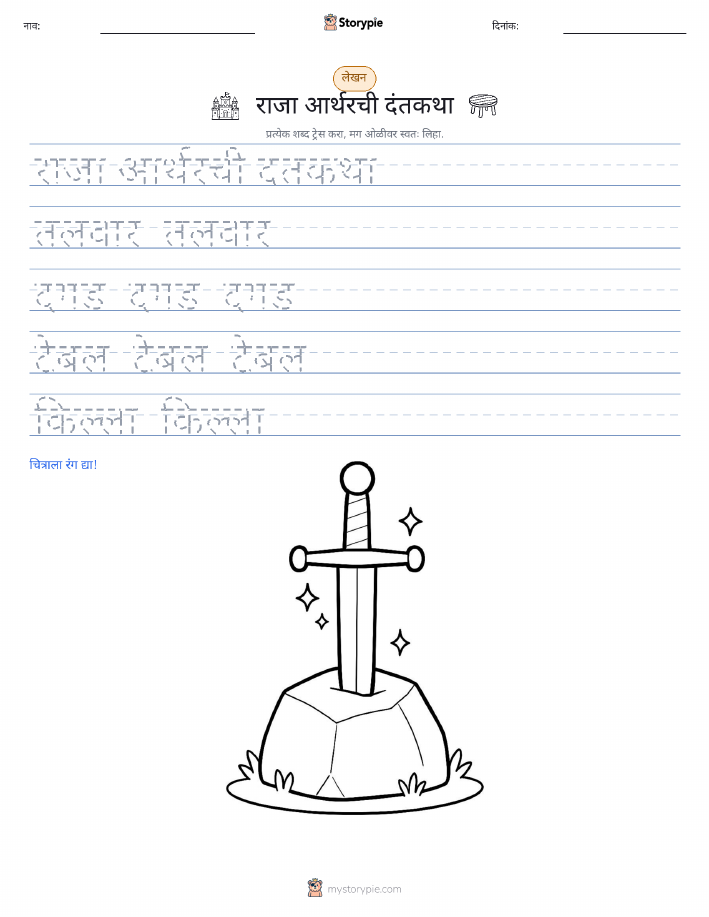 नाव:
Storypie
दिनांक:
लेखन
राजा आर्थरची दंतकथा
प्रत्येक शब्द ट्रेस करा, मग ओळीवर स्वतः लिहा.
राजा आर्थरची दंतकथा
तलवार तलवार
दगड दगड दगड
टेबल टेबल टेबल
किल्ला किल्ला
चित्राला रंग द्या!
mystorypie.com